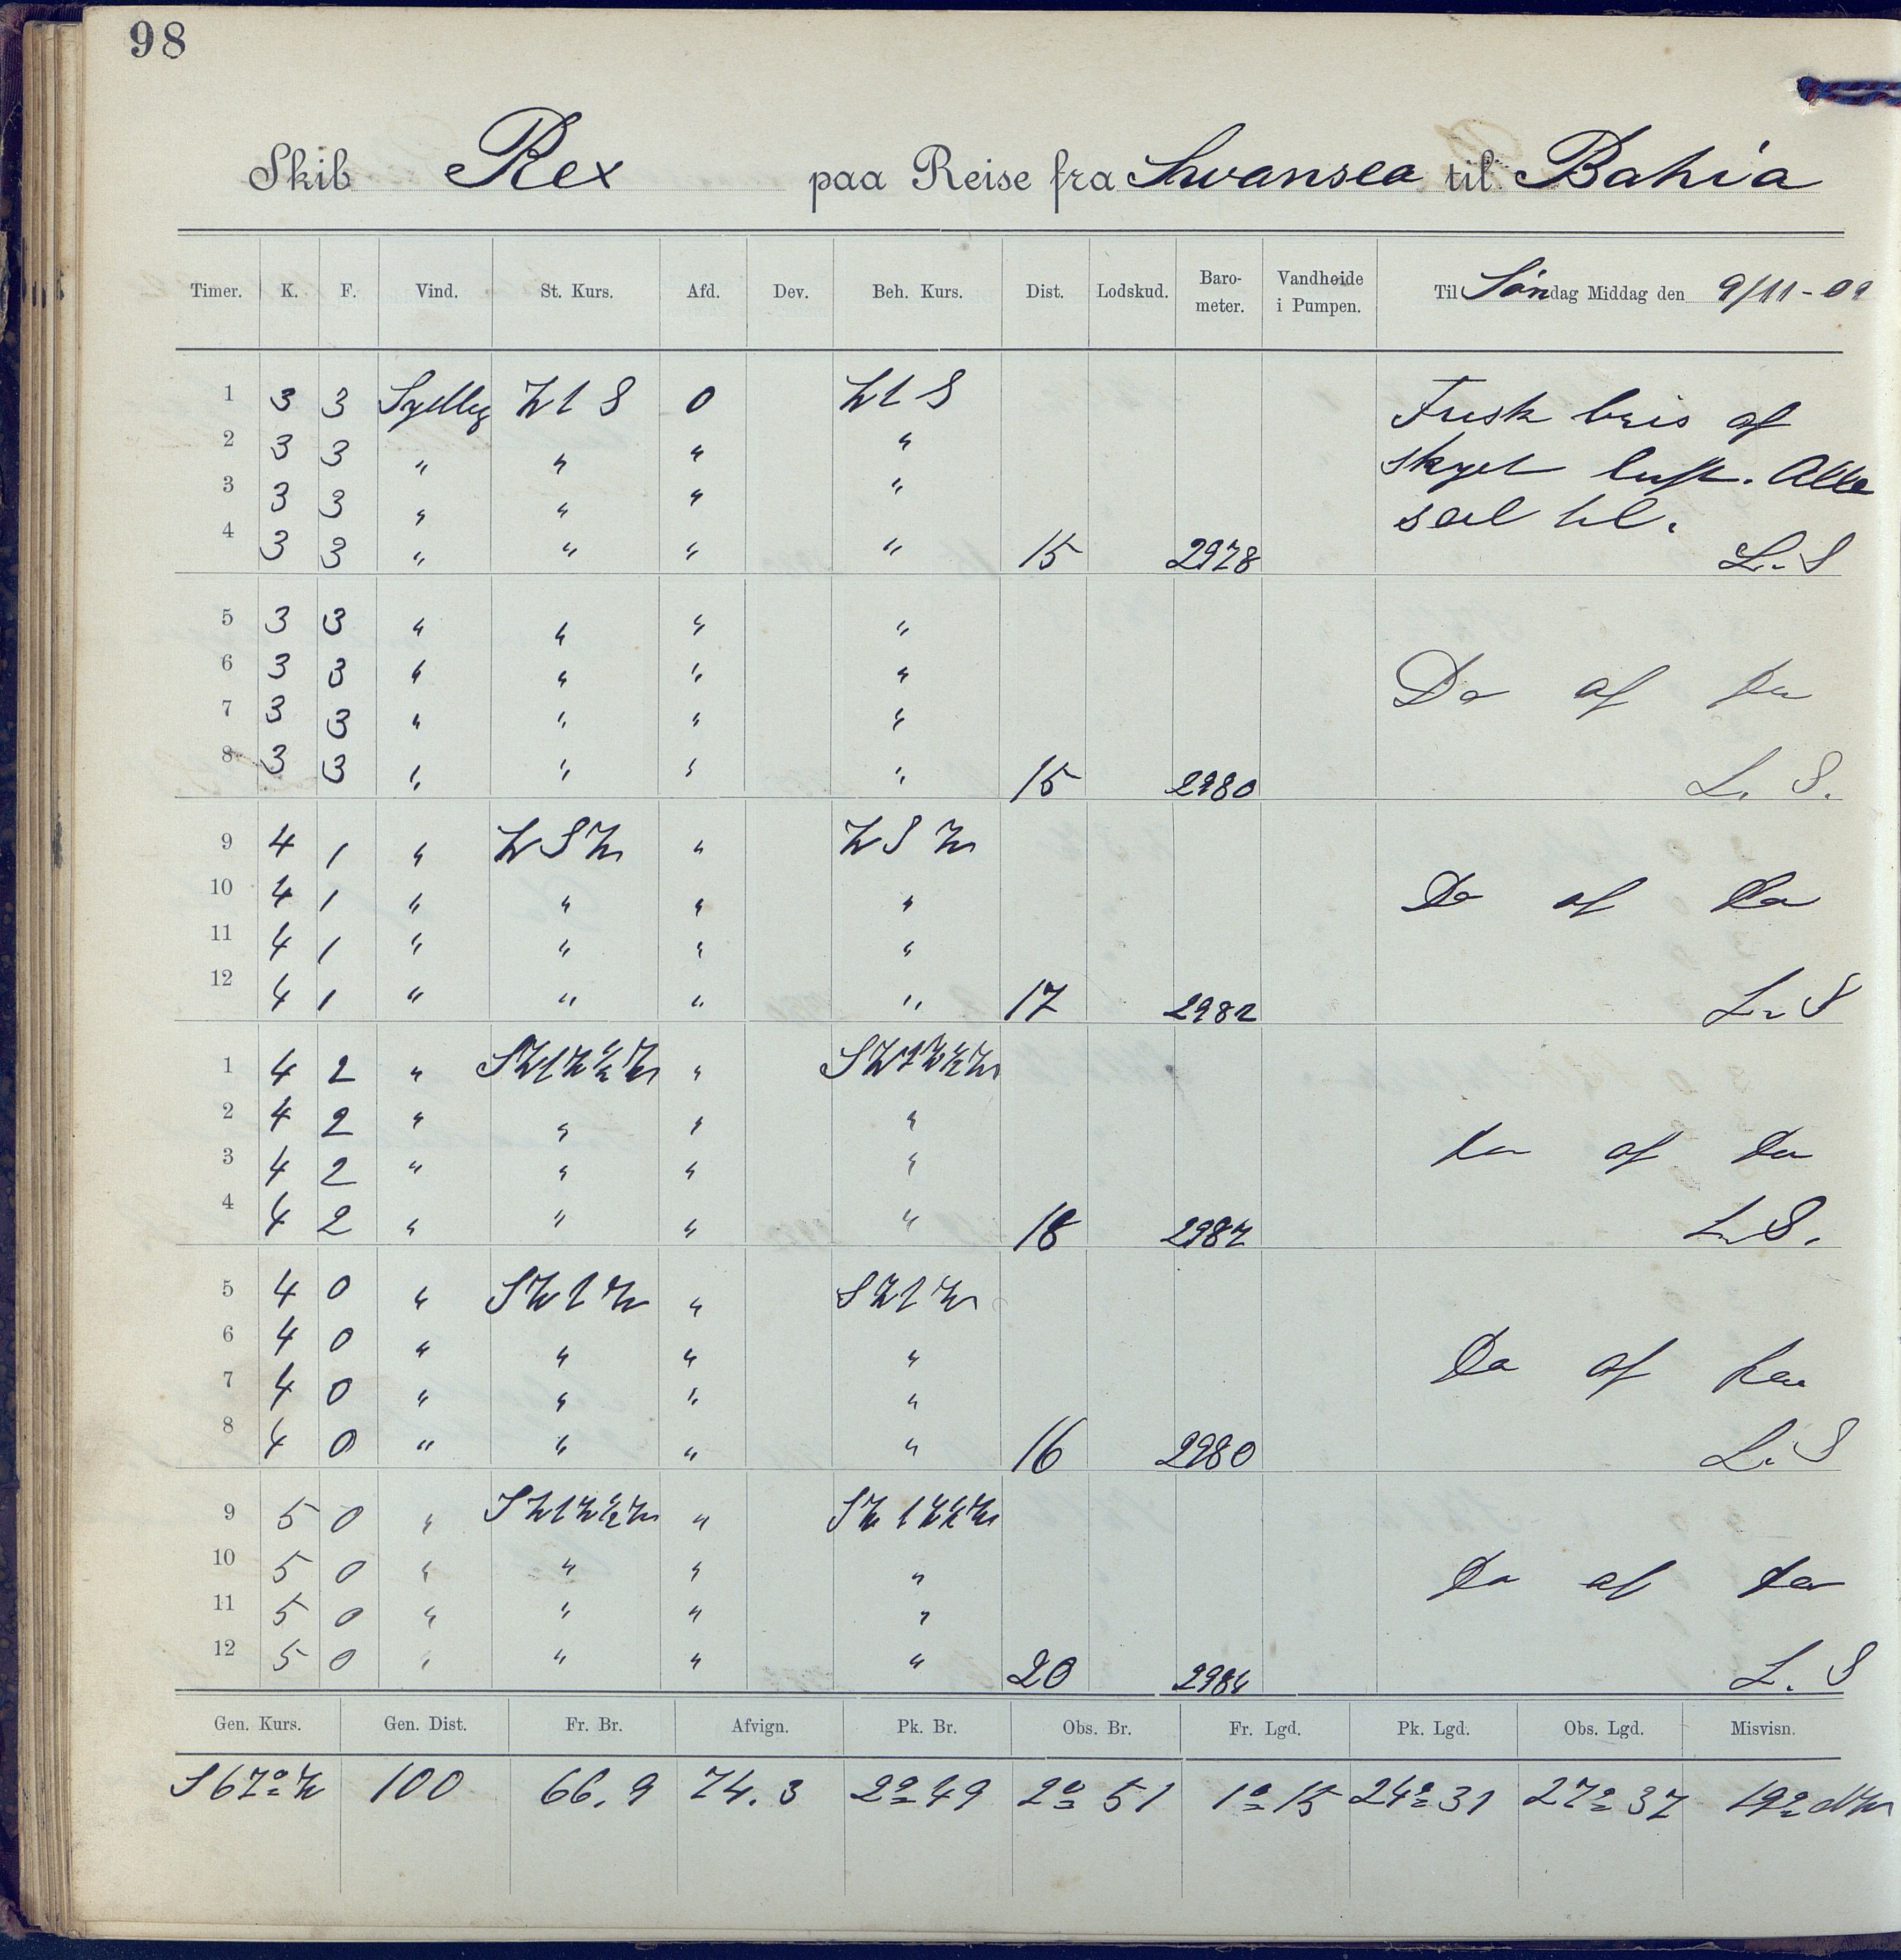 98
Skib Rex paa Reise fra Swansea til Bahia
Timer. K. F. Vind. St. Kurs. Afd. Dev. Beh. Kurs. Dist. Lodskud. Baro-meter. Vandhøide i Pumpen. Til Søndag Middag den 9/11-09
1 3 3 Sydlig W t S 0 W t S Frisk bris af
2 3 3 " " " " skyet luft. Alle
3 3 3 " " " " seil til.
4 3 3 " " " " 15 2978 L. S
5 3 3 " " " "
6 3 3 " " " " Do af Do
7 3 3 " " " "
8 3 3 " " " " 15 2980 L. S.
9 4 1 " W S W " W S W
10 4 1 " " " " Do af Do
11 4 1 " " " "
12 4 1 " " " " 17 2982 L. S
1 4 2 " SWtW½W " SWtW½W
2 4 2 " " " " Do af Do
3 4 2 " " " "
4 4 2 " " " " 18 2982 L. S.
5 4 0 " SW t W " SW t W
6 4 0 " " " " Do af Do
7 4 0 " " " "
8 4 0 " " " " 16 2980 L. S
9 5 0 " SWtW½W " SWtW½W
10 5 0 " " " " Do af Do
11 5 0 " " " "
12 5 0 " " " " 20 2984 L. S
Gen. Kurs. Gen. Dist. Fr. Br. Afvign. Pk. Br. Obs. Br. Fr. Lgd. Pk. Lgd. Obs. Lgd. Misvisn.
S 67° W 100 66.9 74.3 2° 49 2° 51 1° 15 24° 31 27° 37 19°